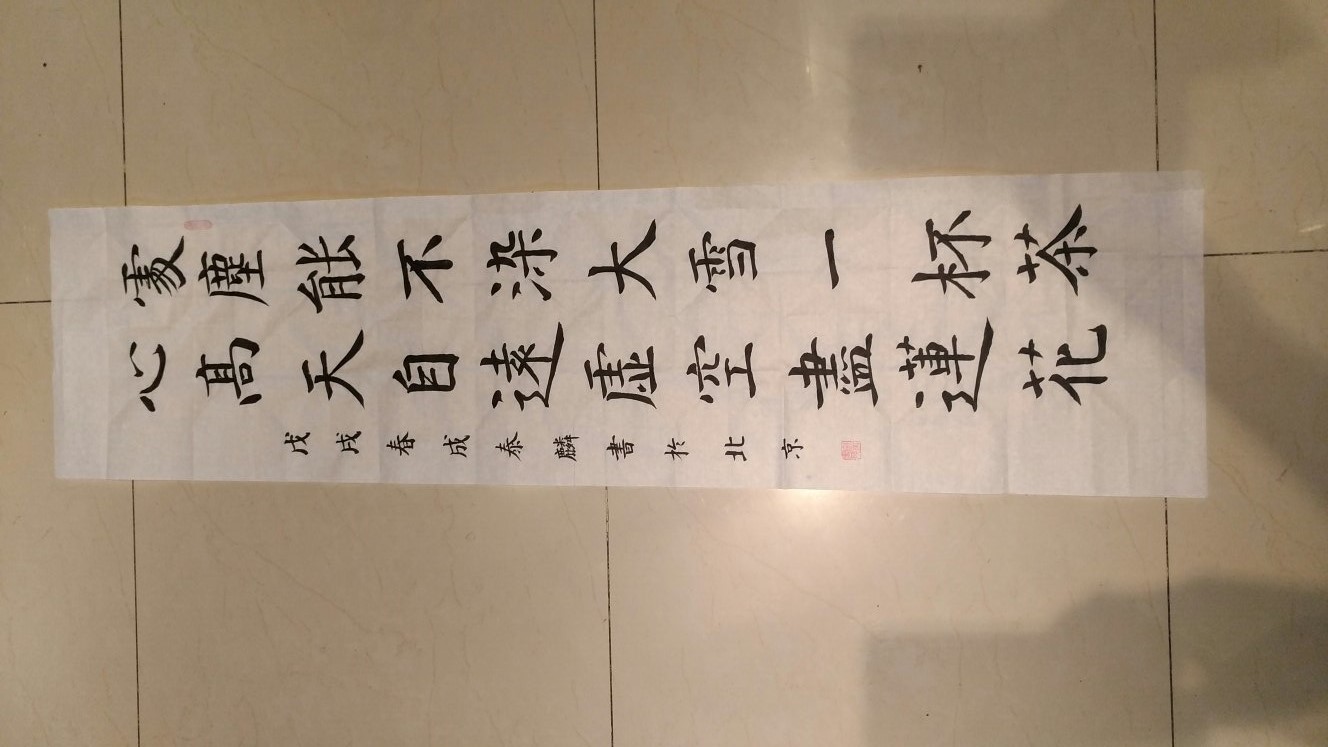 處塵能不染大雪一杯茶
心高天自遠虛空盡蓮花
戊戌春成泰麟書於北京